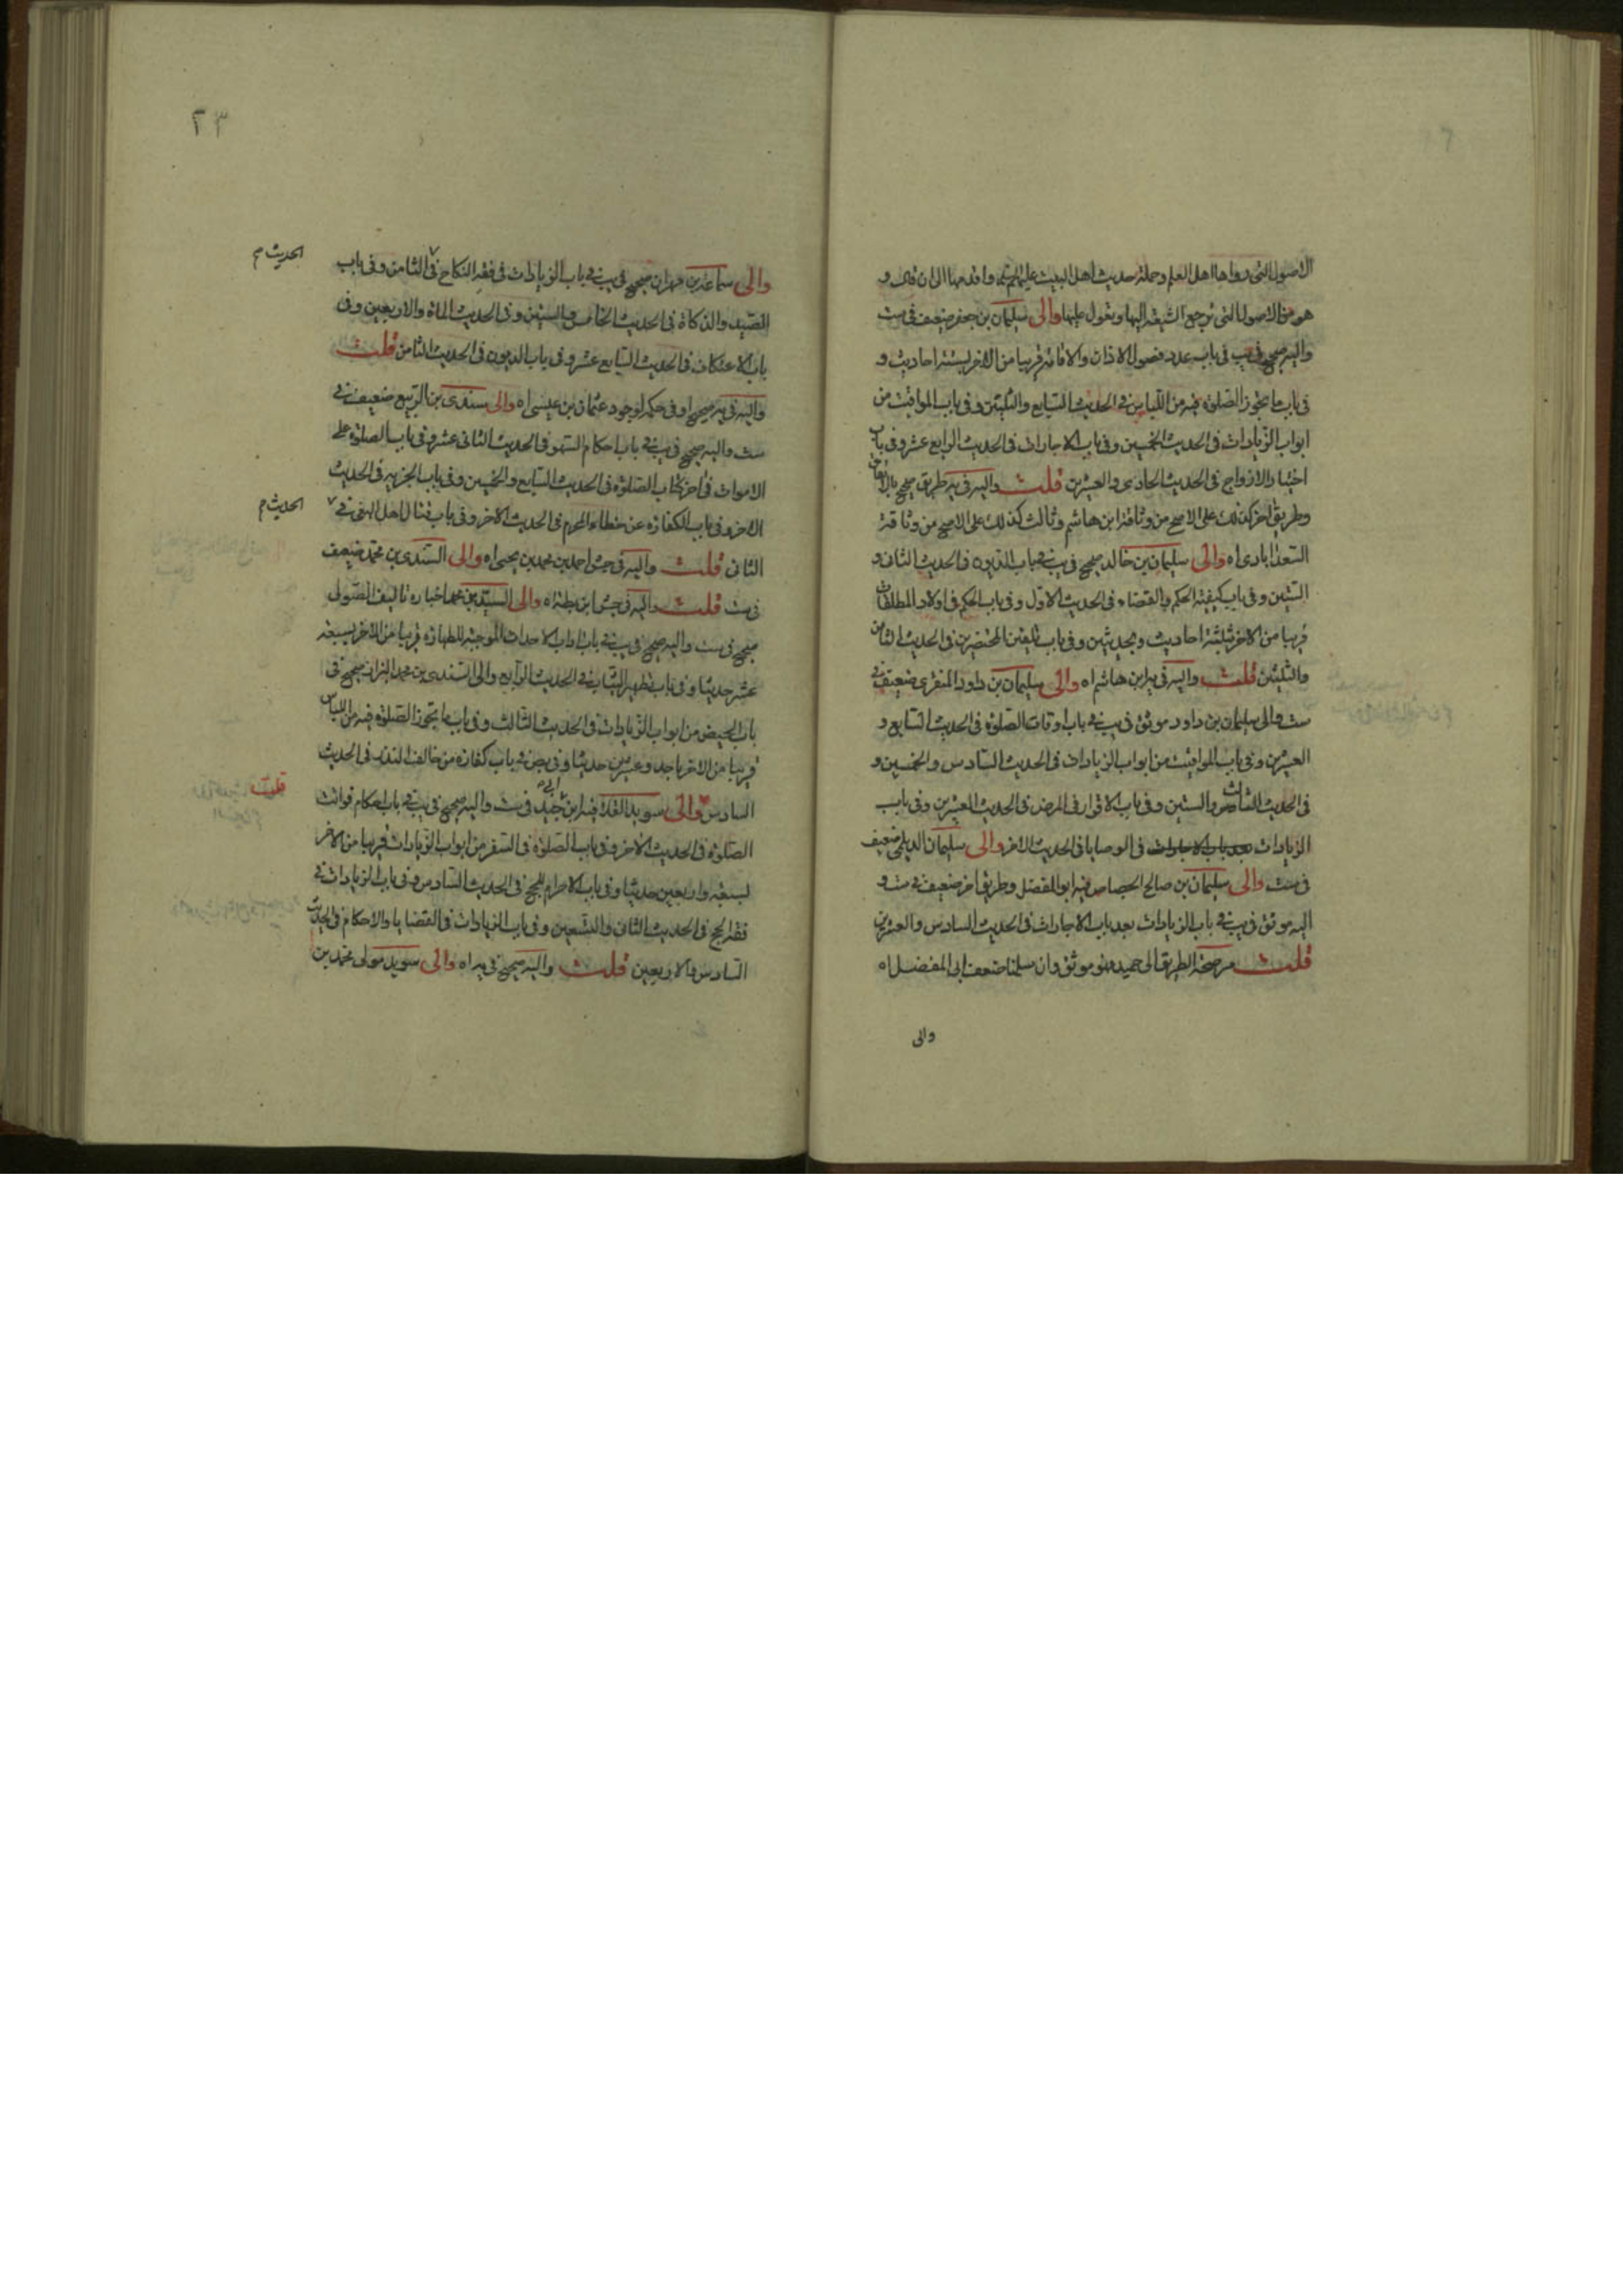 الاصول التی رواها اهل العلم وحملة حدیث اهل البیت علیهم السلم واقدمها الی ان قال و
هو من الاصول التی ترجع الشیعة الیها وتعول علیها والی سلیمان بن جعفر ضعیف فی ست
والیه صحیح فی یب فی باب عدد فصول الاذان والاقامة قریبا من الاخر بستة احادیث و
فی باب ما یجوز الصلوة فیه من اللباس فی الحدیث السابع والثلثین وفی باب المواقیت من
ابواب الزیادات فی الحدیث الخمسین وفی باب الاجارات فی الحدیث الرابع عشر وفی باب
اختیار الازواج فی الحدیث الحادی والعشرین قلت والیه فی یه طریق صحیح بالاتفاق
وطریق اخر کذلک علی الاصح من وثاقة ابن هاشم وثالث کذلک علی الاصح من وثاقة
السعدابادی اه والی سلیمان بن خالد صحیح فی یب فی باب الدیون فی الحدیث الثانی و
الستین وفی باب کیفیة الحکم والقضاء فی الحدیث الاول وفی باب الحکم فی اولاد المطلقات
قریبا من الاخر بثلثة احادیث وبحدیثین وفی باب تلقین المحتضرین فی الحدیث الثامن
والثلثین قلت والیه فی یه ابن هاشم اه والی سلیمان بن داود المنقری ضعیف فی
ست والی سلیمان بن داود موثق فی یب فی باب اوقات الصلوة فی الحدیث السابع و
العشرین وفی باب المواقیت من ابواب الزیادات فی الحدیث السادس والخمسین و
فی الحدیث الثالث والستین وفی باب الاقرار فی المرض فی الحدیث العشرین وفی باب
الزیادات بعد باب الاجارات فی الوصایا فی الحدیث الاخر والی سلیمان الدیلمی ضعیف
فی ست والی سلیمان بن صالح الجصاص فیه ابو المفضل وطریق اخر ضعیف فی ست و
الیه موثق فی یب فی باب الزیادات بعد باب الاجارات فی الحدیث السادس والعشرین
قلت مر صحة الطریق الی حمید فهو موثق وان سلمنا ضعف ابی المفضل اه
والی
٢٣
والی سماعة بن مهران صحیح فی یب فی باب الزیادات فی فقه النکاح فی الثامن وفی باب
الحدیث م
الصید والذکاة فی الحدیث الخامس والستین وفی الحدیث الماة والاربعین وفی
باب الاعتکاف فی الحدیث السابع عشر وفی باب الدیون فی الحدیث الثامن قلت
والیه فی یه صحیح او فی حکمه لوجود عثمان بن عیسی اه والی سندی بن الربیع ضعیف فی
ست والیه صحیح فی یب فی باب احکام السهو فی الحدیث الثانی عشر وفی باب الصلوة علی
الاموات فی اخر کتاب الصلوة فی الحدیث السابع والخمسین وفی باب الجزیة فی الحدیث
الاخر وفی باب الکفارة عن خطاء المحرم فی الحدیث الاخر وفی باب قتال اهل البغی فی
الحدیث م
الثانی قلت والیه فی جش احمد بن محمد بن یحیی اه والی السندی بن محمد ضعیف
فی ست قلت والیه فی جش ابن بطة اه والی السید بن محمد اخباره تالیف الصولی
صحیح فی ست والیه صحیح فی یب فی باب اداب الاحداث الموجبة للطهارة قریبا من الاخر بسبعة
عشر حدیثا وفی باب تطهیر الثیاب فی الحدیث الرابع والی السندی بن محمد البزاز صحیح فی
باب الحیض من ابواب الزیادات فی الحدیث الثالث وفی باب ما یجوز الصلوة فیه من اللباس
قریبا من الاخر باحد وعشرین حدیثا وفی بص فی باب کفارة من خالف النذر فی الحدیث
السادس والی سوید القلا فیه ابن ابی جید فی ست والیه صحیح فی یب فی باب احکام فوائت
قلت
الصلوة فی الحدیث الاخر وفی باب الصلوة فی السفر من ابواب الزیادات قریبا من الاخر
بسبعة واربعین حدیثا وفی باب الاحرام للحج فی الحدیث السادس وفی باب الزیادات فی
فقه الحج فی الحدیث الثانی والتسعین وفی باب الزیادات فی القضایا والاحکام فی الحدیث
السادس والاربعین قلت والیه صحیح فی یه اه والی سوید مولی محمد بن